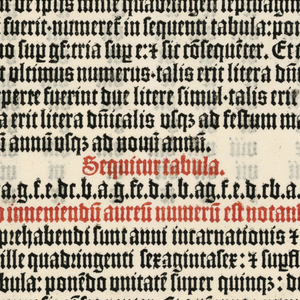 de ipius mille quadringen septuagin
fuerit. numerek̄ in sequenti tabula: po
no sup̱ gf: tria sup̱ e: ⁊ sic cōsequēter. Et
t vltimus numerus. talis erit litera dn̄
perte fuerint due litere simul. talis eri
a erit litera dn̄icalis vsqȝ ad festum ma
ū annū vsqȝ ad nouū annū.
Sequitur tabula.
a.g.f.e.dc.b.a.g.fe.d.c.b.ag.f.e.d.cb.a.
inueniendū aureū numerū est notan
p̱: ehabendi sunt anni incarnationis ⁊
ille quadringenti sexagintasex: ⁊ supfl
bula: ponēdo vnitatē super quinqȝ: d